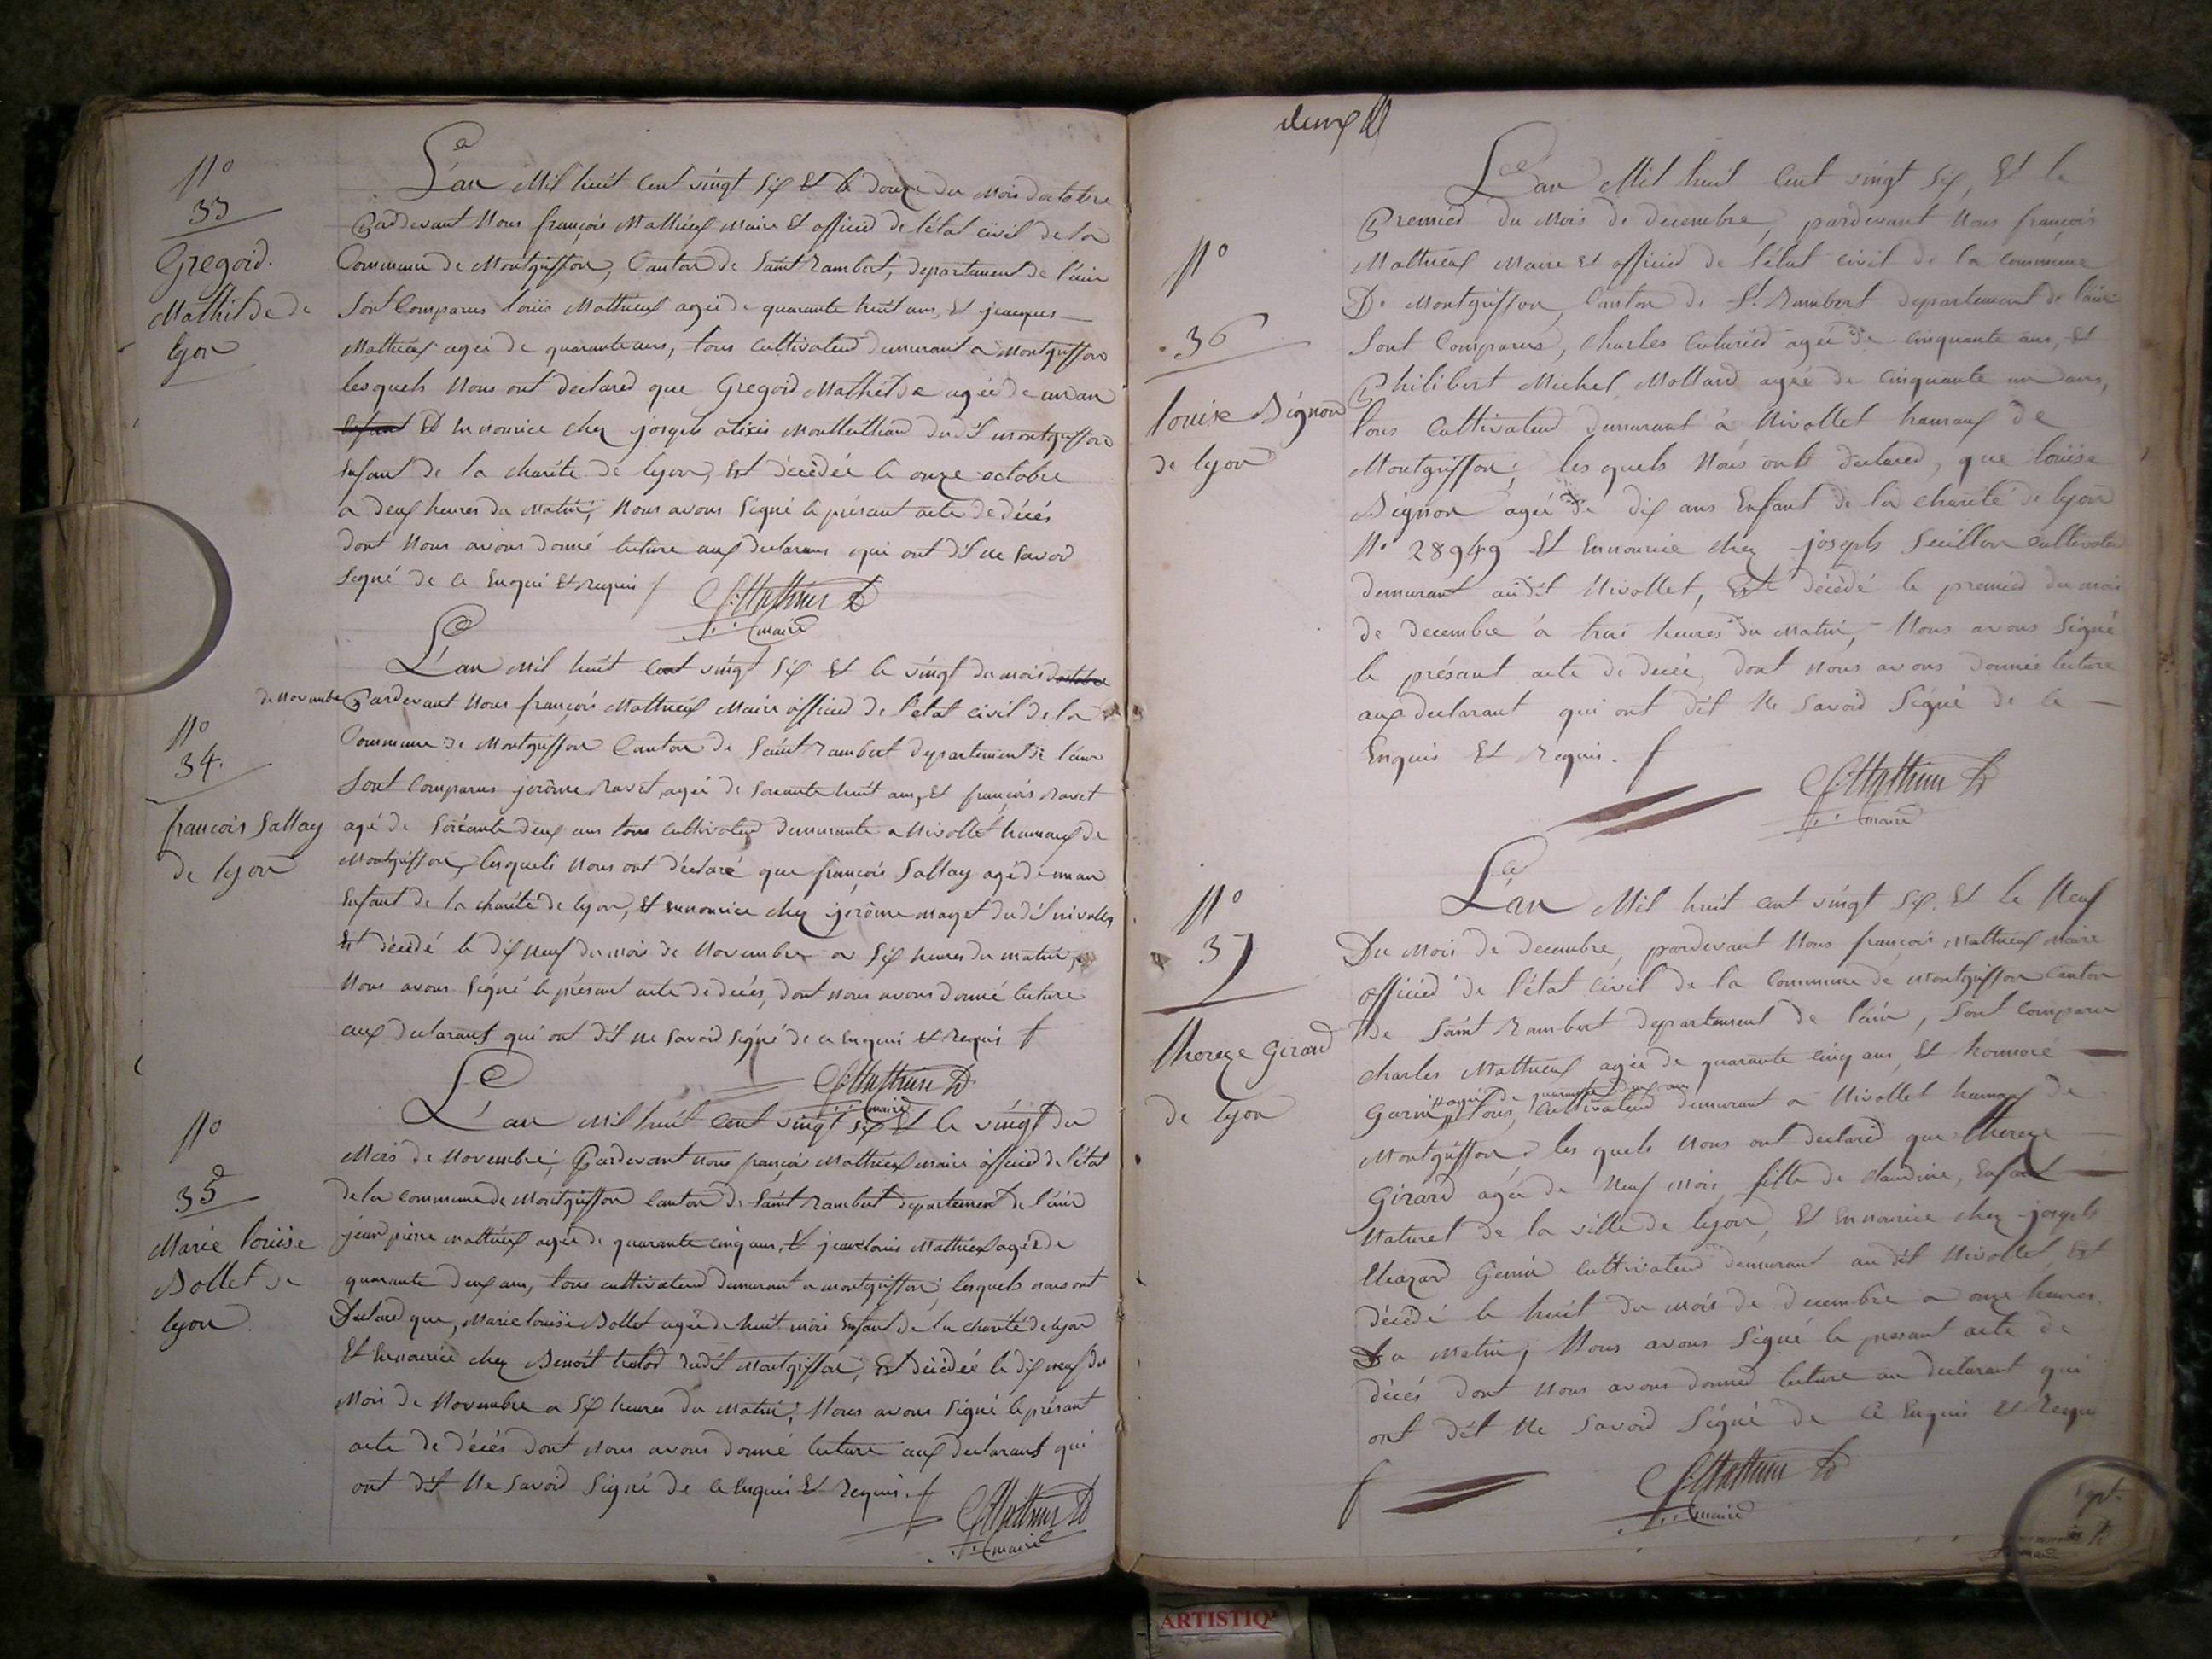 N°
33
Gregoid.
Mathilde de
lyon
L'an Mil huit Cent vingt Six Et le douze du Mois doctobre
Pardevant Nous françois Mathieux Maire Et officied de l'état civil de la
Commune de Montgriffon, Canton de Saint Rambert, departement de l'ain
Sont Comparus louis Mathieux agée de quarante huit ans, Et jeacques
Mathieux agée de quarante ans, tous Cultivateud demurant a Montgriffon
lesquels Nous ont declared que Gregoid Mathilde agée de un an
Enfant Et En nourice chez joseph alixis Monttuillian dudit Montgriffon
Enfant de la charité de lyon, Est décédée le onze octobre
a deux heures du Matin, Nous avons Signé le présant acte de décés
dont Nous avons donné lecture aux declarans qui ont dit ne Savoid
Signé de ce Enqui Et requis
f. Mathieux
maire
L'an Mil huit Cent vingt Six Et le vingt du mois doctobre
de novembre
Pardevant Nous françois Mathieux Maire officied de l'état civil de la
N°
34.
françois Sallay
de lyon
Commune de Montgriffon Canton de Saint Rambert departement de l'ain
Sont Comparus jerôme Ravet, agée de Soixante huit ans, Et françois Ravet
agé de Soixante deux ans tous Cultivateud demurants a Nivollet hameaux de
Montgriffon, lesquels Nous ont déclaré que françois Sallay agé de un an
Enfant de la charité de lyon, Et En nourice chez jerôme maget dudit nivollet
Est décédé le dix Neuf du mois de Novembre a Six heures du matin,
Nous avons Signé le présant acte de décés, dont nous avons donné lecture
aux declarants qui ont dit ne Savoid Signé de ce Enqui Et requis
f. Mathieux
maire
N°
35
Marie louise
Bollet de
lyon
L'an Mil huit Cent vingt Six Et le vingt du
Mois de Novembre, Pardevant nous françois Mathieux maire officied de l'état
de la commune de Montgriffon Canton de Saint Rambert departement de l'ain
jean pierre Mathieux agée de quarante cinq ans, Et jean louis Mathieux agée de
quarante deux ans, tous cultivateud demurant a montgriffon, lesquels nous ont
Declared que, Marie louise Bollet agée de huit mois Enfant de la charité de lyon
Et En nourice chez Benoit dudit Montgriffon, Est décédée le dix neuf du
Mois de Novembre a Six heures du Matin, Nous avons Signé le présant
acte de décés dont Nous avons donné lecture aux declarants qui
ont dit Ne Savoid Signé de ce Enquis Et Requis.
f. Mathieux
maire
deux
N°
36
louise Bignon
de lyon
L'an Mil huit Cent vingt Six, Et le
Premied du Mois de decembre, pardevant Nous françois
Mathieux Maire Et officied de l'état civil de la Commune
De Montgriffon, Canton de St. Rambert departement de l'ain
Sont Comparus, Charles Cuturied agée de cinquante ans, Et
Philibert Michel Mollard agée de Cinquante un ans,
tous Cultivateud demurant à Nivollet hameaux de
Montgriffon, les quels Nous ont declared, que louise
Bignon agée de dix ans Enfant de la charité de lyon
N° 28949 Et En nourice chez joseph Seillon cultivateud
demurant audit Nivollet, Est décédé le premied du mois
de decembre à trois heures du Matin, Nous avons Signé
le présant acte de décés, dont Nous avons donnée lecture
aux declarant qui ont dit Ne Savoid Signé de ce
Enquis Et Requis.
f. Mathieux
maire
N°
37
thereze Girard
de lyon
L'an Mil huit cent vingt Six. Et le Neuf
Du Mois de decembre, pardevant Nous françois Mathieux Maire
officied de l'état civil de la Commune de Montgriffon Canton
de Saint Rambert departement de l'ain, Sont Comparu
charles Mathieux agée de quarante cinq ans, Et honnoré
agée de quarante deux ans
Garin tous cultivateud demurant a Nivollet hameaux de
Montgriffon, les quels Nous ont declared que thereze
Girard agée de Neuf Mois, fille de claudine, Enfant
Naturel de la ville de lyon, Et En nourice chez joseph
Eleazard Garin cultivateud demurant au dit Nivollet, Est
décédé le huit du Mois de Decembre a onze heures
Du Matin, Nous avons Signé le presant acte de
décés dont Nous avons donned lecture au declarant qui
ont dit Ne Savoid Signé de ce Enquis Et Requi
f. Mathieux
maire
Sept.
ARTISTIQ